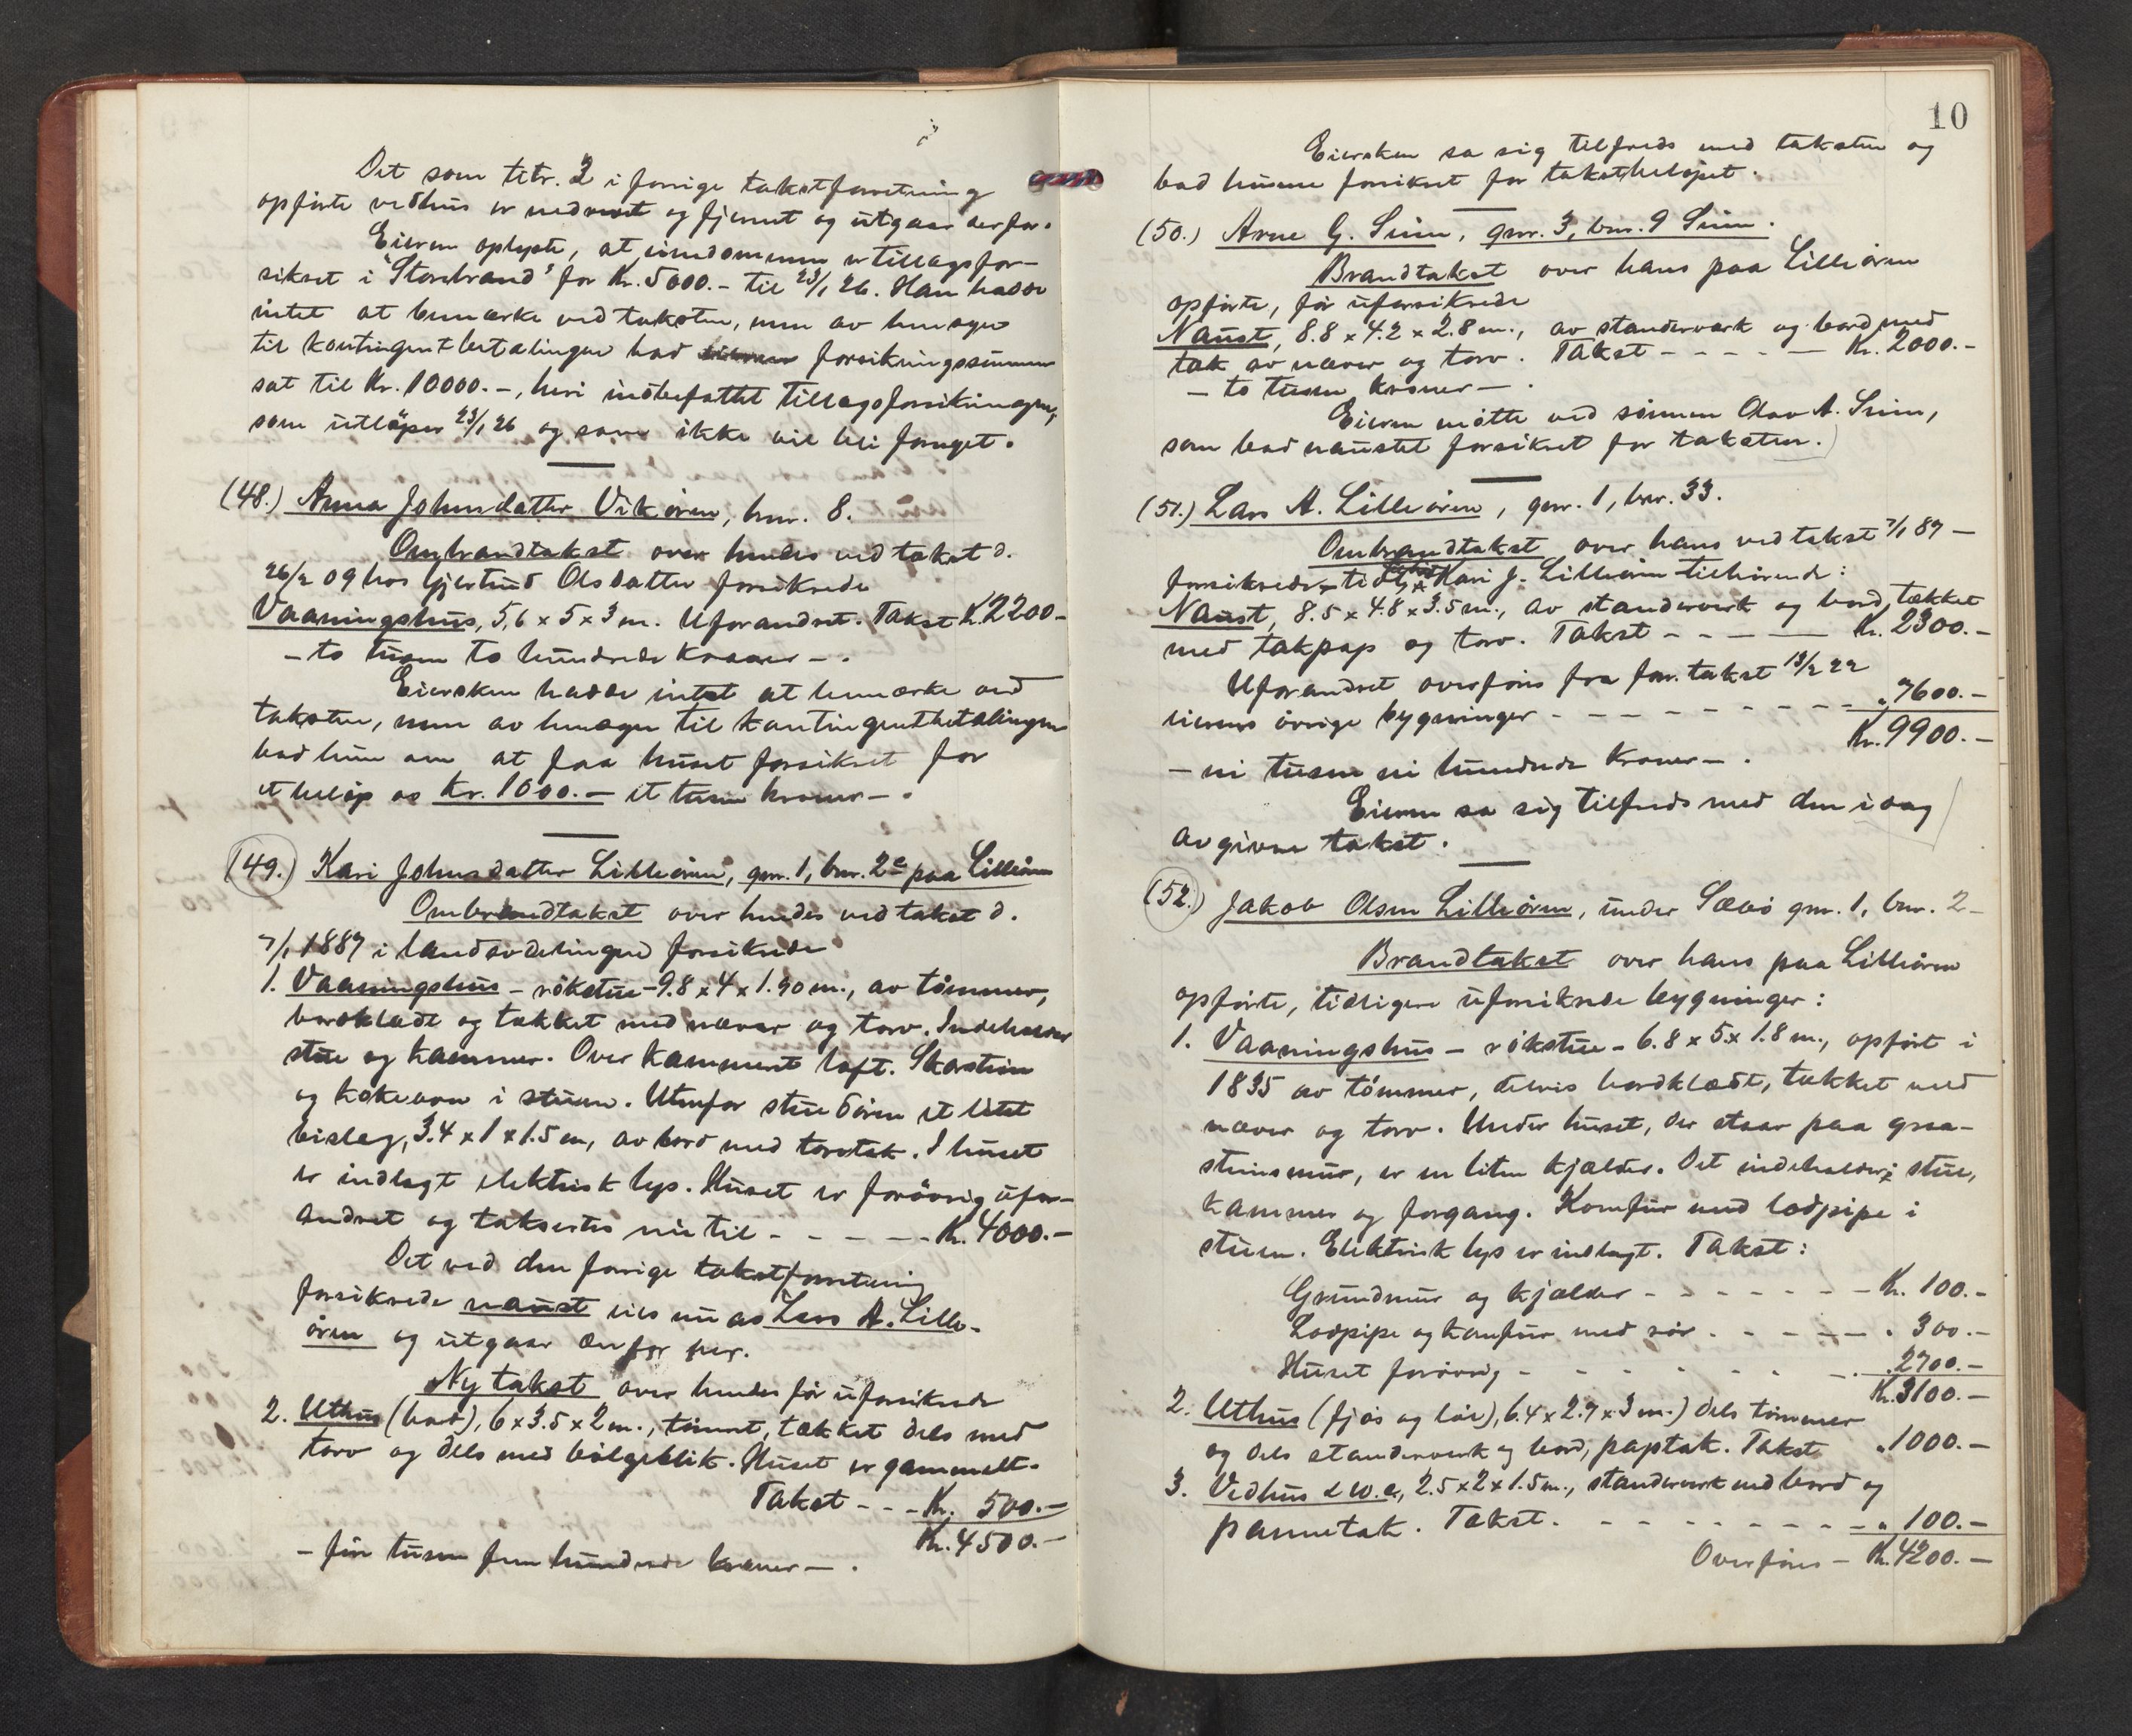 Det som litr. 2 i forrige takstforretning
opførte vedhus er nedrevet og fjernet og utgaar derfor.
Eieren oplyste, at eiendommen er tillægsfor-
sikret i "Storebrand" for Kr. 5000.- til 23/1 26. Han hadde
intet at bemærke ved taksten, men av hensyn
til kontingentbetalingen bad forsikringssummen
sat til Kr. 10000.-, heri indbefattet tillægsforsikringen,
som utløper 23/1 26 og som ikke vil bli fornyet.
(48.) Anna Johnsdatter Vikøren, bnr. 8.
Ombrandtakst over hendes ved takst d.
26/2 09 hos Gjertrud Olsdatter forsikrede
Vaaningshus, 5,6 x 5 x 3 m. Uforandret. Takst K. 2200-
- to tusen to hundrede kroner - .
Eiersken hadde intet at bemærke ved
taksten, men av hensyn til kontingentbetalingen
bad hun om at faa huset forsikret for
et beløp av Kr. 1000.- et tusen kroner - .
(49.) Kari Johnsdatter Lilleøren, gnr. 1, bnr. 2 paa Lilleøren
Ombrandtakst over hendes ved takst d.
7/1 1887 i landsavdelingen forsikrede
1. Vaaningshus - røkstue - 9.8 x 4 x 1.90 m., av tømmer,
bordklædt og tækket med næver og torv. Indeholder
stue og kammer. Over kammeret loft. Skorstein
og kokeovn i stuen. Utenfor stuedøren et litet
bislag, 3.4 x 1 x 1.5 m, av bord med torvtak. I huset
er indlagt elektrisk lys. Huset er forøvrig ufor-
andret og taksertes nu til - - - - - Kr. 4000.-
Det ved den forrige takstforretning
forsikrede naust eies nu av Lars A. Lille-
øren og utgaar derfor her.
Ny takst over hendes før uforsikrede
2. Uthus (bod), 6 x 3.5 x 2 m., tømret, tækket dels med
torv og dels med bølgeblik. Huset er gammelt.
Takst - - - Kr. 500.-
Kr. 4500.-
- fire tusen fem hundrede kroner - .
10
Eiersken sa sig tilfreds med taksten og
bad husene forsikret for takstbeløpet.
(50.) Arne G. Siim, gnr. 3, bnr. 9 Siim.
Brandtakst over hans paa Lilleøren
opførte, før uforsikrede
Naust, 8.8 x 4.2 x 2.8 m., av standerverk og bord med
tak av næver og torv. Takst - - - - - Kr. 2000.-
- to tusen kroner - .
Eieren møtte ved sønnen Olav A. Siim,
som bad naustet forsikret for taksten.
(51.) Lars A. Lilleøren, gnr. 1, bnr. 33.
Ombrandtakst over hans ved takst 7/1 87 -
forsikrede, tidl. Kari J. Lilleøren tilhørende:
Naust, 8.5 x 4.8 x 3.5 m., av standerverk og bord, tækket
med takpap og torv. Takst - - - - Kr. 2300.-
Uforandret overføres fra forr. takst 13/2 22
eierens øvrige bygninger - - - - - - - - - „ 7600.-
Kr. 9900.-
- ni tusen ni hundrede kroner - .
Eieren sa sig tilfreds med den i dag
avgivne takst.
(52.) Jakob Olsen Lilleøren, under Sæbø gnr. 1, bnr. 2-
Brandtakst over hans paa Lilleøren
opførte, tidligere uforsikrede bygninger:
1. Vaaningshus - røkstue - 6.8 x 5 x 1.8 m., opført i
1835 av tømmer, delvis bordklædt, tækket med
næver og torv. Under huset, der staar paa graa-
steinsmur, er en liten kjælder. Det indeholder: stue,
kammer og forgang. Komfur med lodpipe i
stuen. Elektrisk lys er indlagt. Takst:
Grundmur og kjælder - - - - - - - Kr. 100.-
Lodpipe og komfur med rør . - - - - - „ 300.-
Huset forøvrig - - - - - - - - „ 2700.-
Kr. 3100.-
2. Uthus (fjøs og løe), 6.4 x 2.7 x 3 m.) dels tømmer
og dels standerverk og bord, paptak. Takst „ 1000.-
3. Vedhus & w.c., 2.5 x 2 x 1.5 m., standerverk med bord og
pannetak. Takst. - - - - - - - - - „ 100.-
Overføres - Kr. 4200.-